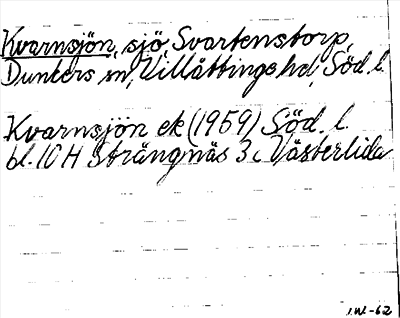 Kvarnsjön, sjö, Svartenstorp,
Dunkers sn, Villåttinge hd, Söd. l.
Kvarnsjön ek (1959) Söd. l.
bl. 10 H Strängnäs 3 c Västerlida
I.W.-62